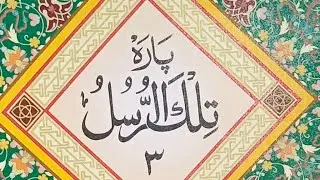 پارہ
تِلْكَ الرُّسُلُ
۳